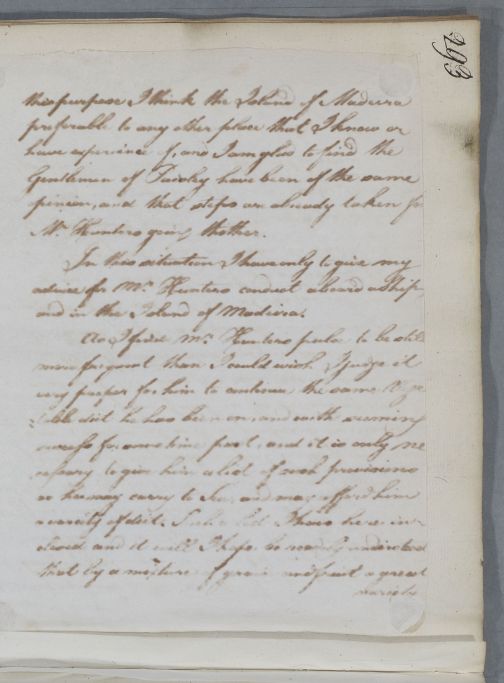 293
this purpose I think the Island of Madeira
preferable to any other place that I know or
have experience of, and I am glad to find the
Gentlemen of Faculty have been of the same
opinion, and that steps are already taken for
Mr. Hunters going thither.
In this situation I have only to give my
advice for Mr. Hunters conduct aboard a Ship
and in the Island of Madeira.
As I find Mr. Hunters pulse to be still
more frequent than I could wish I judge it
very proper for him to continue the same Vege
table diet he has been on, and with seeming
success for some time past, and it is only ne
cessary to give him a list of such provisions
as he may carry to Sea, and may afford him
a variety of diet. Such a list I have here in-
closed and it will I hope be readily understood
that by a mixture of grain and fruit a great
variety